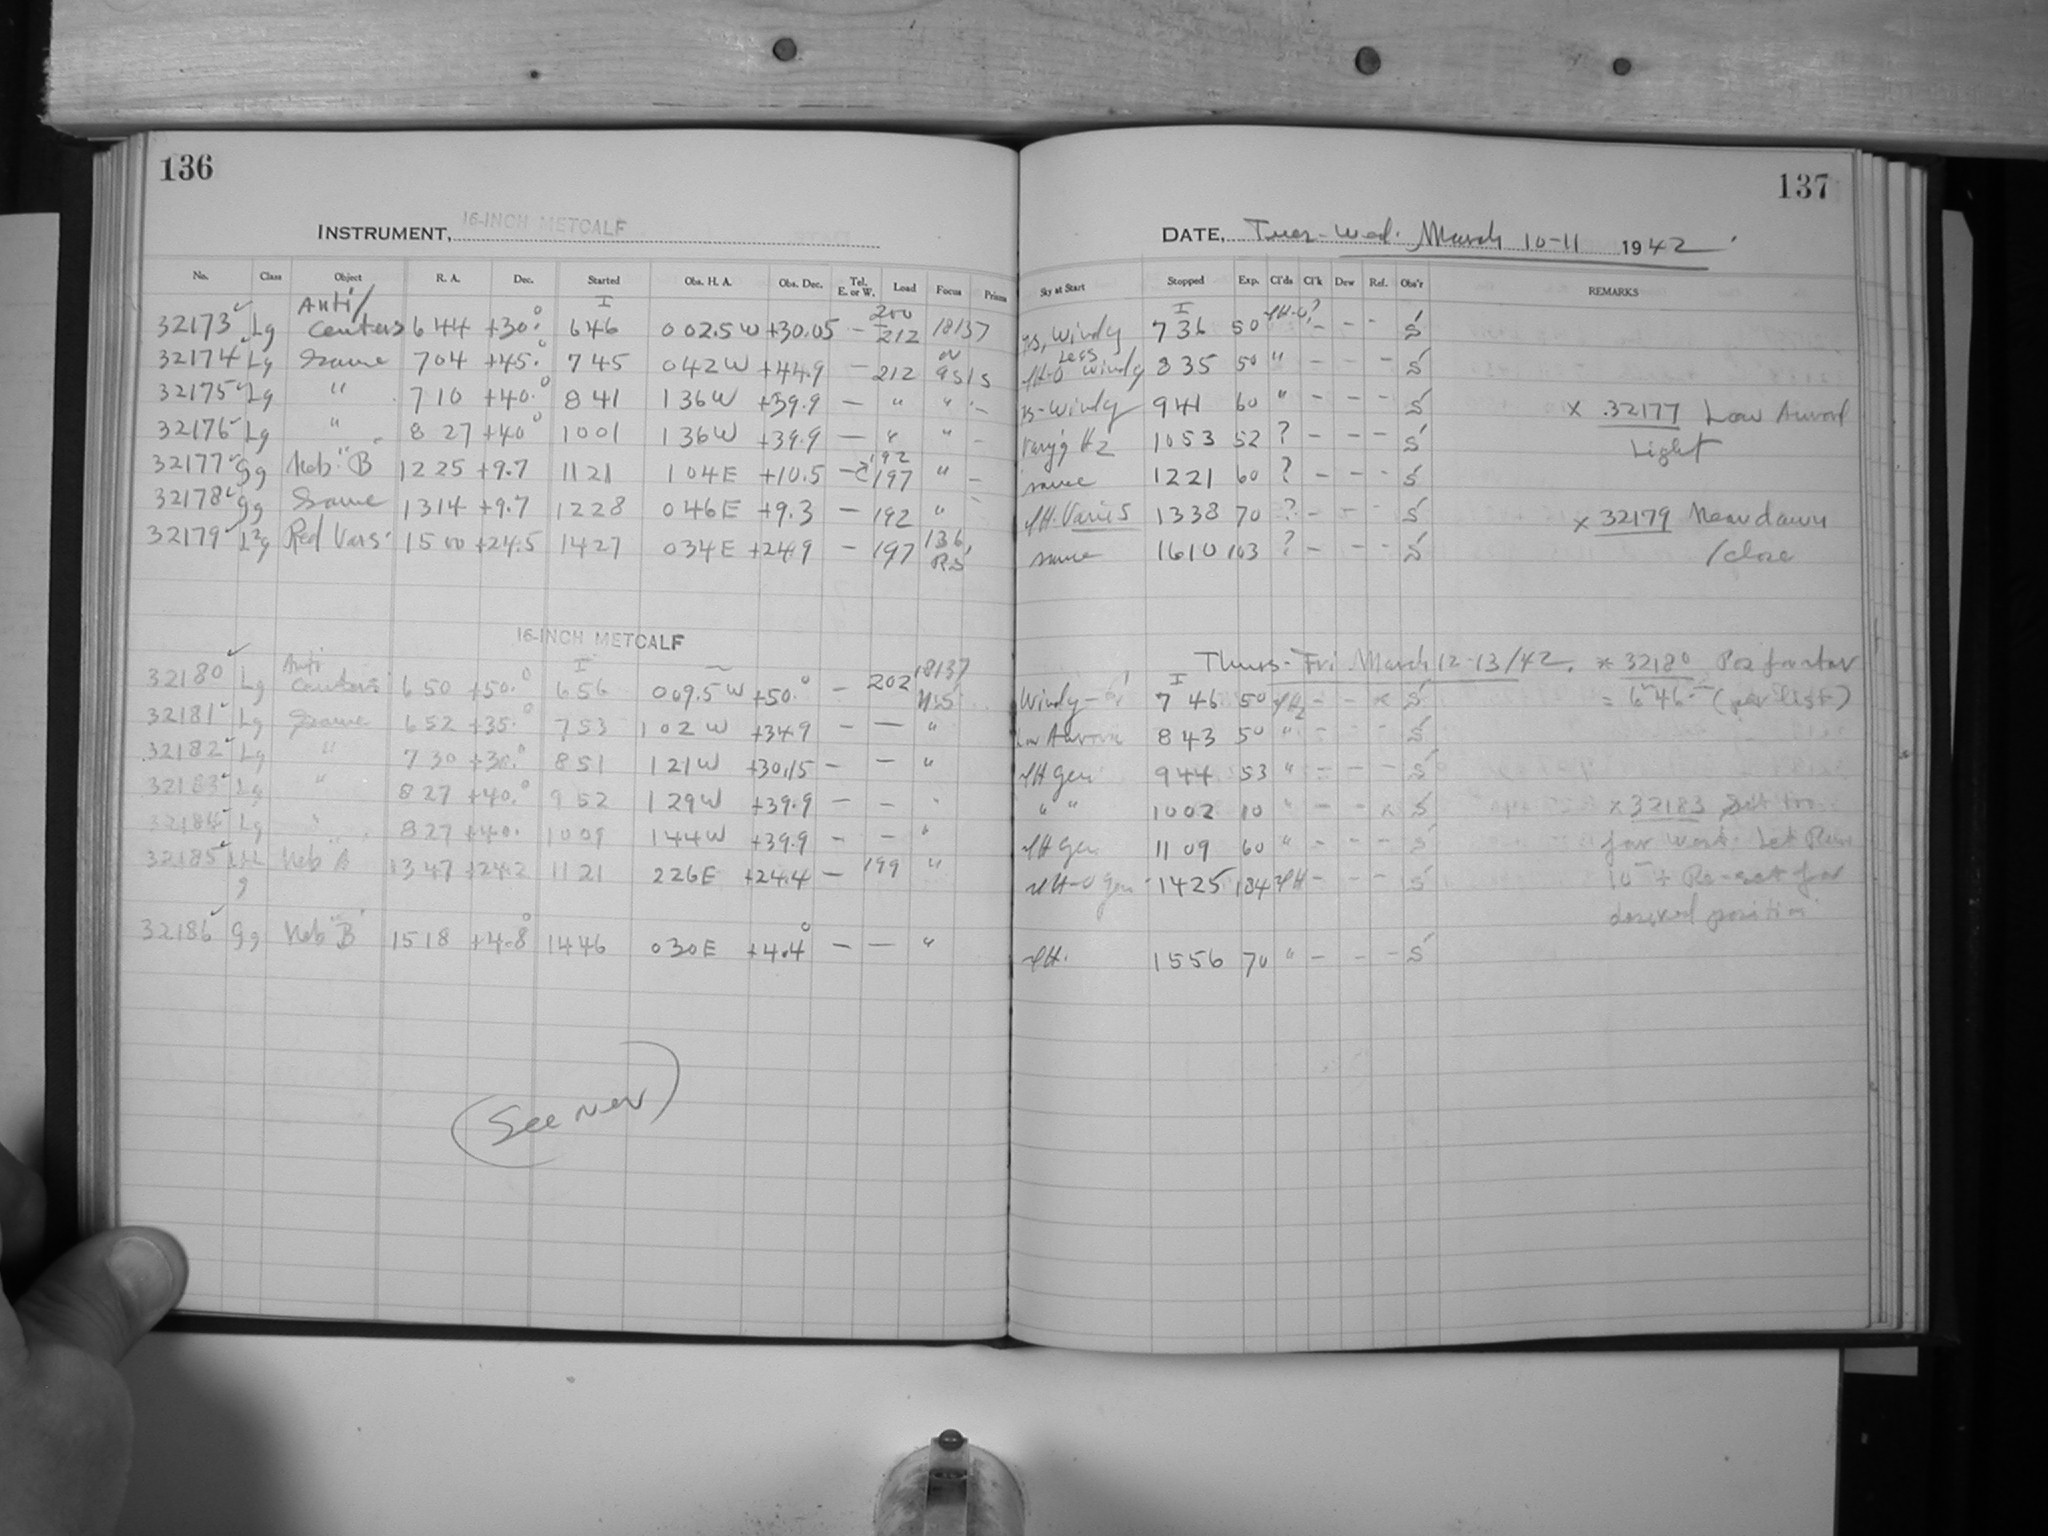 136
137
INSTRUMENT, 16-INCH METCALF
DATE, Tues-Wed. March 10-11 1942
No. Class Object R. A. Dec. Started Obs. H. A. Obs. Dec. Tel. E. or W. Load Focus Prism Sky at Start Stopped Exp. Cl'ds Cl'k Dew Ref. Obs'r REMARKS
32173 ✓ Lg Anti/ Centers 6 44 +30.° I 6 46 0 02.5 W +30.05 – 200 212 18137 Windy I 7 36 50 ? – – – S
32174 ✓ Lg Same 7 04 +45.° 7 45 0 42 W +44.9 – 212 Less Windy 8 35 50 " – – – S
32175 ✓ Lg " 7 10 +40.° 8 41 1 36 W +39.9 – " " – Windy 9 41 60 " – – – S x 32177 Low Auroral
32176 ✓ Lg " 8 27 +40° 10 01 1 36 W +39.9 – " " – H2 10 53 52 ? – – – S Light
32177 ✓ gg Neb. "B" 12 25 +9.7 11 21 1 04 E +10.5 – 192 197 " – same 12 21 60 ? – – – S
32178 ✓ gg Same 13 14 +9.7 12 28 0 46 E +9.3 – 192 " – Varies 13 38 70 ? – – – S x 32179 Near dawn
32179 ✓ Lg Red Vars. 15 00 +24.5 14 27 0 34 E +24.9 – 197 same 16 10 103 ? – – – S /close
16-INCH METCALF
Thurs-Fri March 12-13/42. * 32180 Pos for star
32180 ✓ Lg Anti Centers 6 50 +50.° I 6 56 0 09.5 W +50.° – 202 18137 Windy – I 7 46 50 – – x S = 6 46 (per list)
32181 ✓ Lg Same 6 52 +35.° 7 53 1 02 W +34.9 – – " Low Aurora 8 43 50 " – – – S
32182 ✓ Lg " 7 30 +30.° 8 51 1 21 W +30.15 – – " Gen 9 44 53 " – – – S
32183 ✓ Lg " 8 27 +40.° 9 52 1 29 W +39.9 – – " " " 10 02 10 " – – x S x 32183 Set
32184 ✓ Lg " 8 27 +40. 10 09 1 44 W +39.9 – – " Gen 11 09 60 " – – – S far west. Let Run
32185 ✓ g Neb "B" 13 47 +24.2 11 21 2 26 E +24.4 – 199 " Gen 14 25 184 – – – S 10 + Re-set for
desired position
32186 ✓ gg Neb "B" 15 18 +4.8° 14 46 0 30 E +4.4° – – " 15 56 70 " – – – S
(See